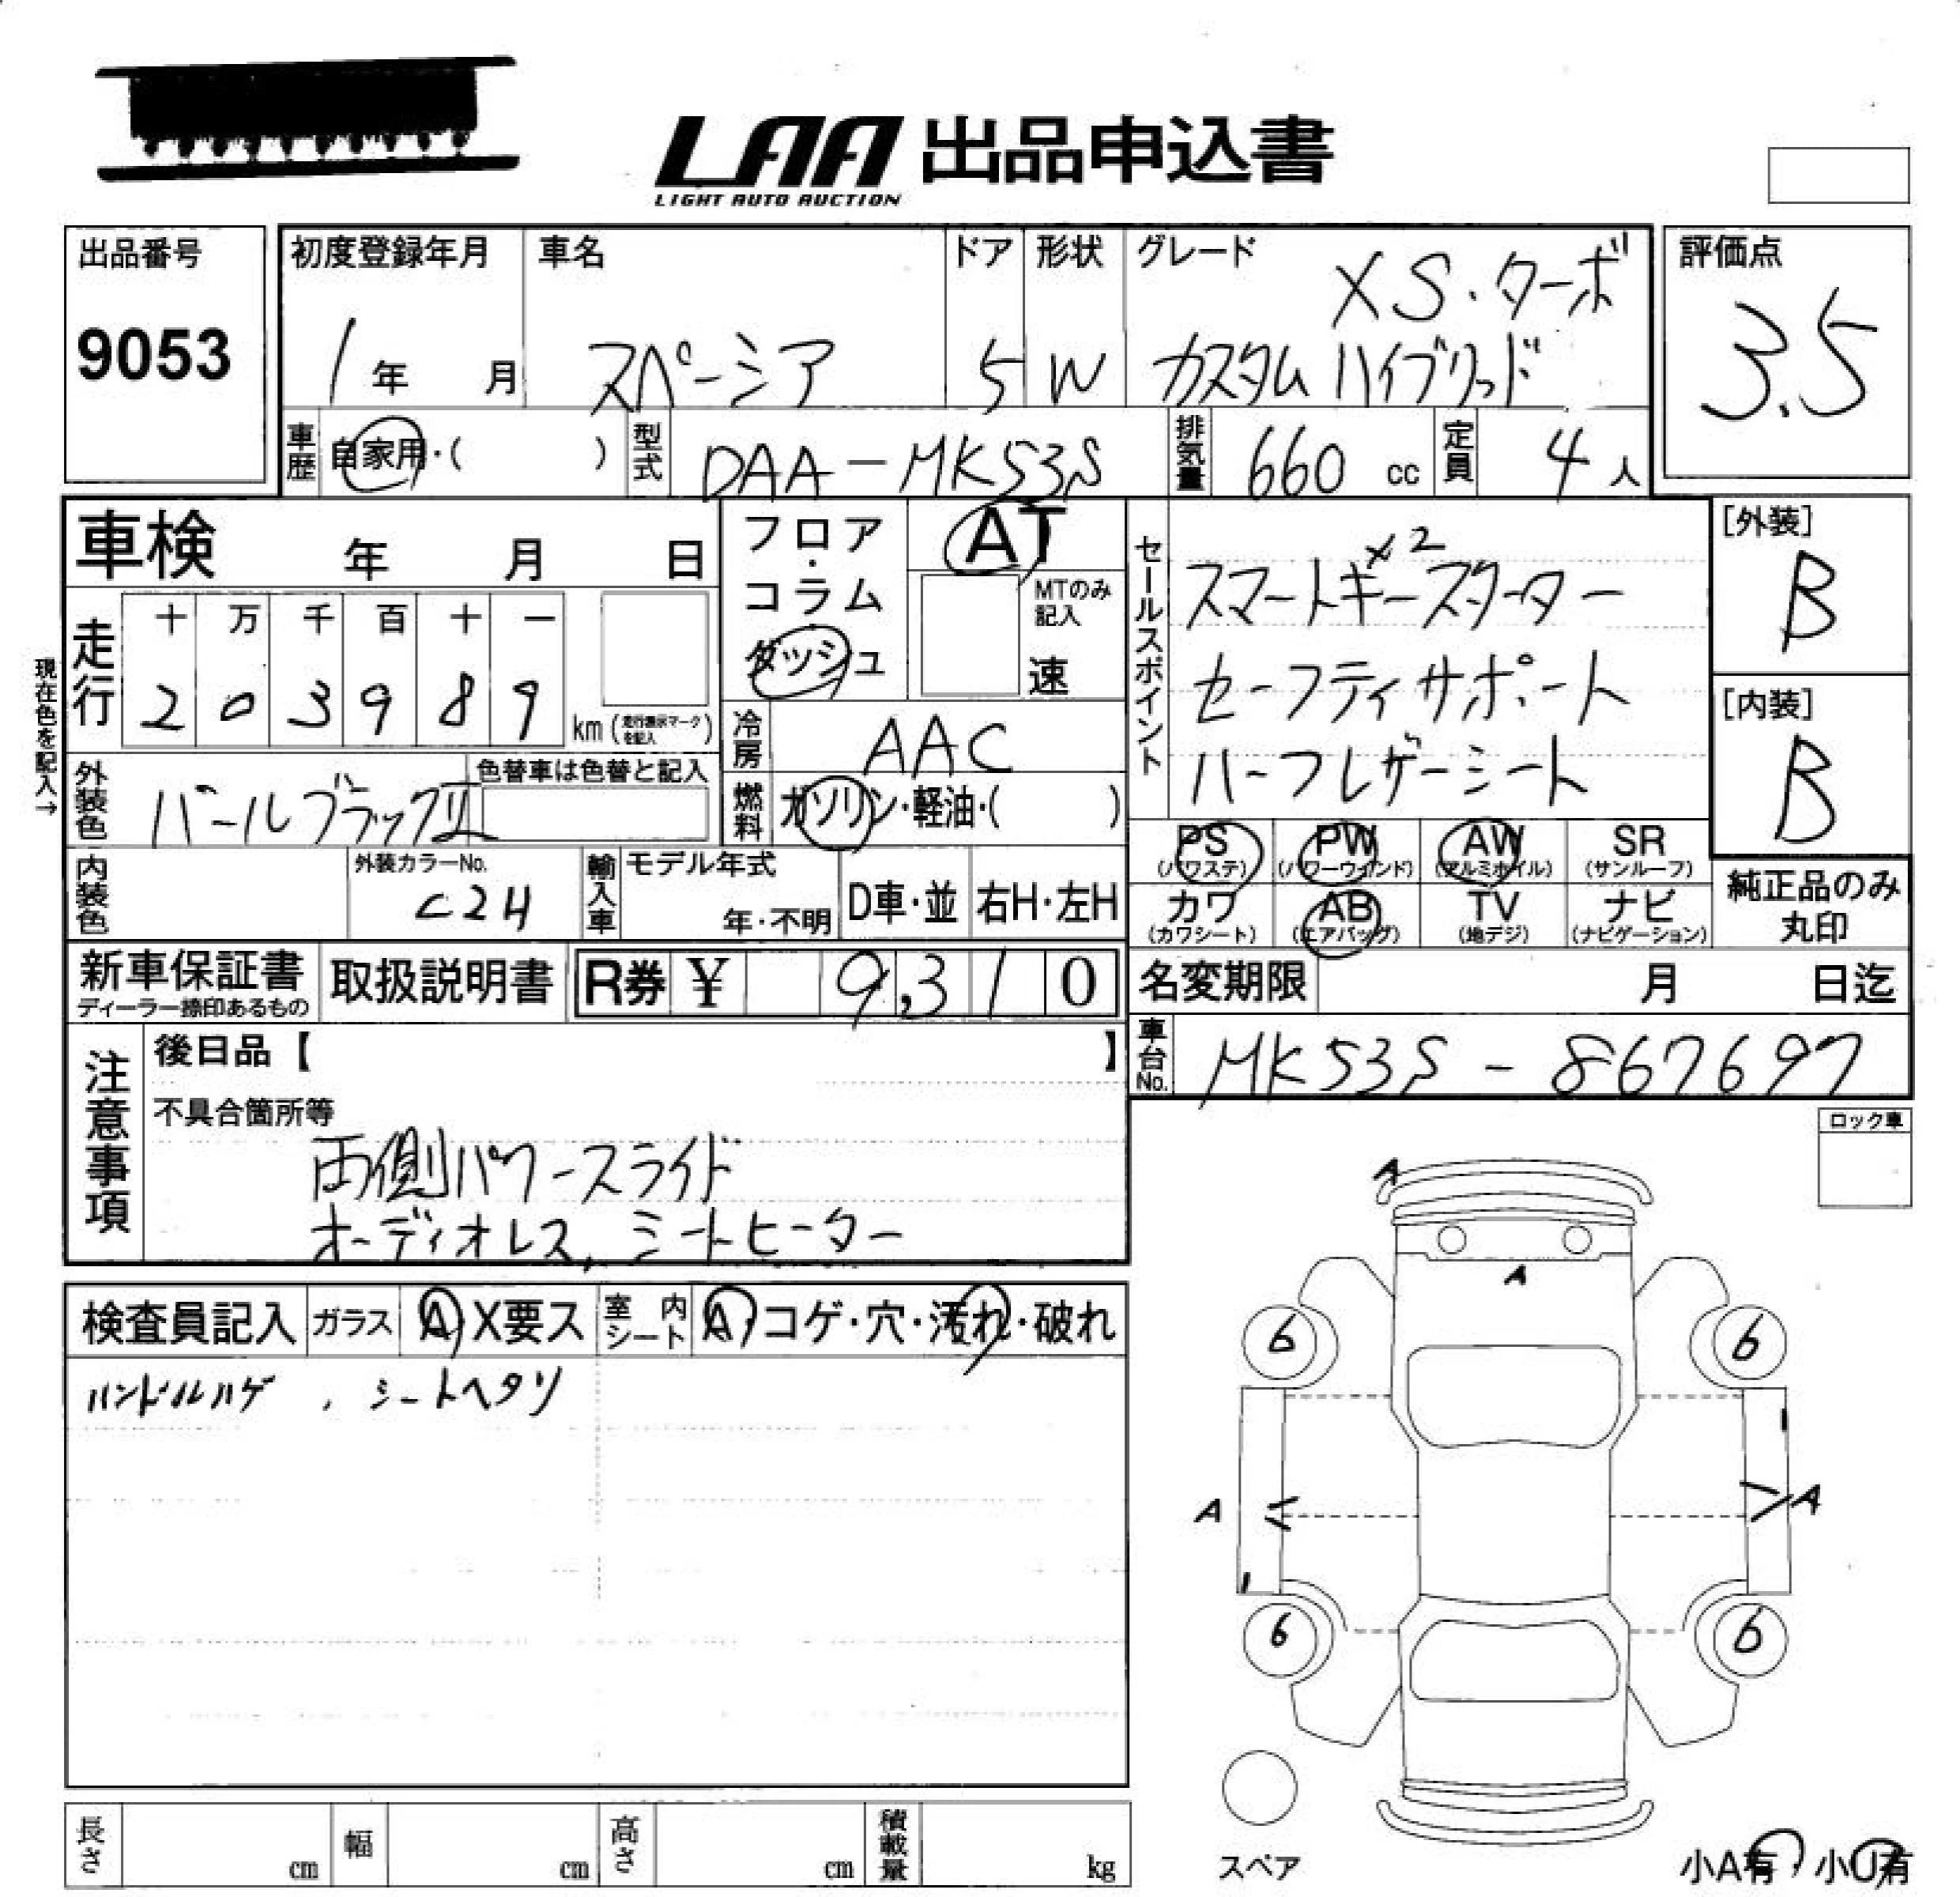 LAA 出品申込書
LIGHT AUTO AUCTION
出品番号
9053
初度登録年月
1年 月
車名
スペーシア
ドア
5
形状
W
グレード
XS・ターボ
カスタムハイブリッド
評価点
3.5
車歴
自家用・( )
型式
DAA-MK53S
排気量
660 cc
定員
4人
車検 年 月 日
フロア・コラム・ダッシュ
AT
MTのみ記入
速
セールスポイント
×2
スマートキースターター
セーフティサポート
ハーフレザーシート
[外装]
B
[内装]
B
現在色を記入→
走行
十 万 千 百 十 一
2 0 3 9 8 9
km (走行表示マークを記入)
冷房
AAC
外装色
パールブラックⅡ
色替車は色替と記入
燃料
ガソリン・軽油・( )
内装色
外装カラーNo.
C2H
輸入車
モデル年式
年・不明
D車・並
右H・左H
PS (パワステ)
PW (パワーウインド)
AW (アルミホイル)
SR (サンルーフ)
カワ (カワシート)
AB (エアバッグ)
TV (地デジ)
ナビ (ナビゲーション)
純正品のみ
丸印
新車保証書
ディーラー捺印あるもの
取扱説明書
R券 ¥ 9,310
名変期限 月 日迄
車台No.
MK53S-867697
注意事項
後日品【 】
不具合箇所等
両側パワースライド
オーディオレス,シートヒーター
ロック車
検査員記入
ガラス
A X要ス
室内シート
A・コゲ・穴・汚れ・破れ
ハンドルハゲ , シートヘタリ
A
A
6 6
A A
6 6
スペア
小A有・小U有
長さ cm
幅 cm
高さ cm
積載量 kg